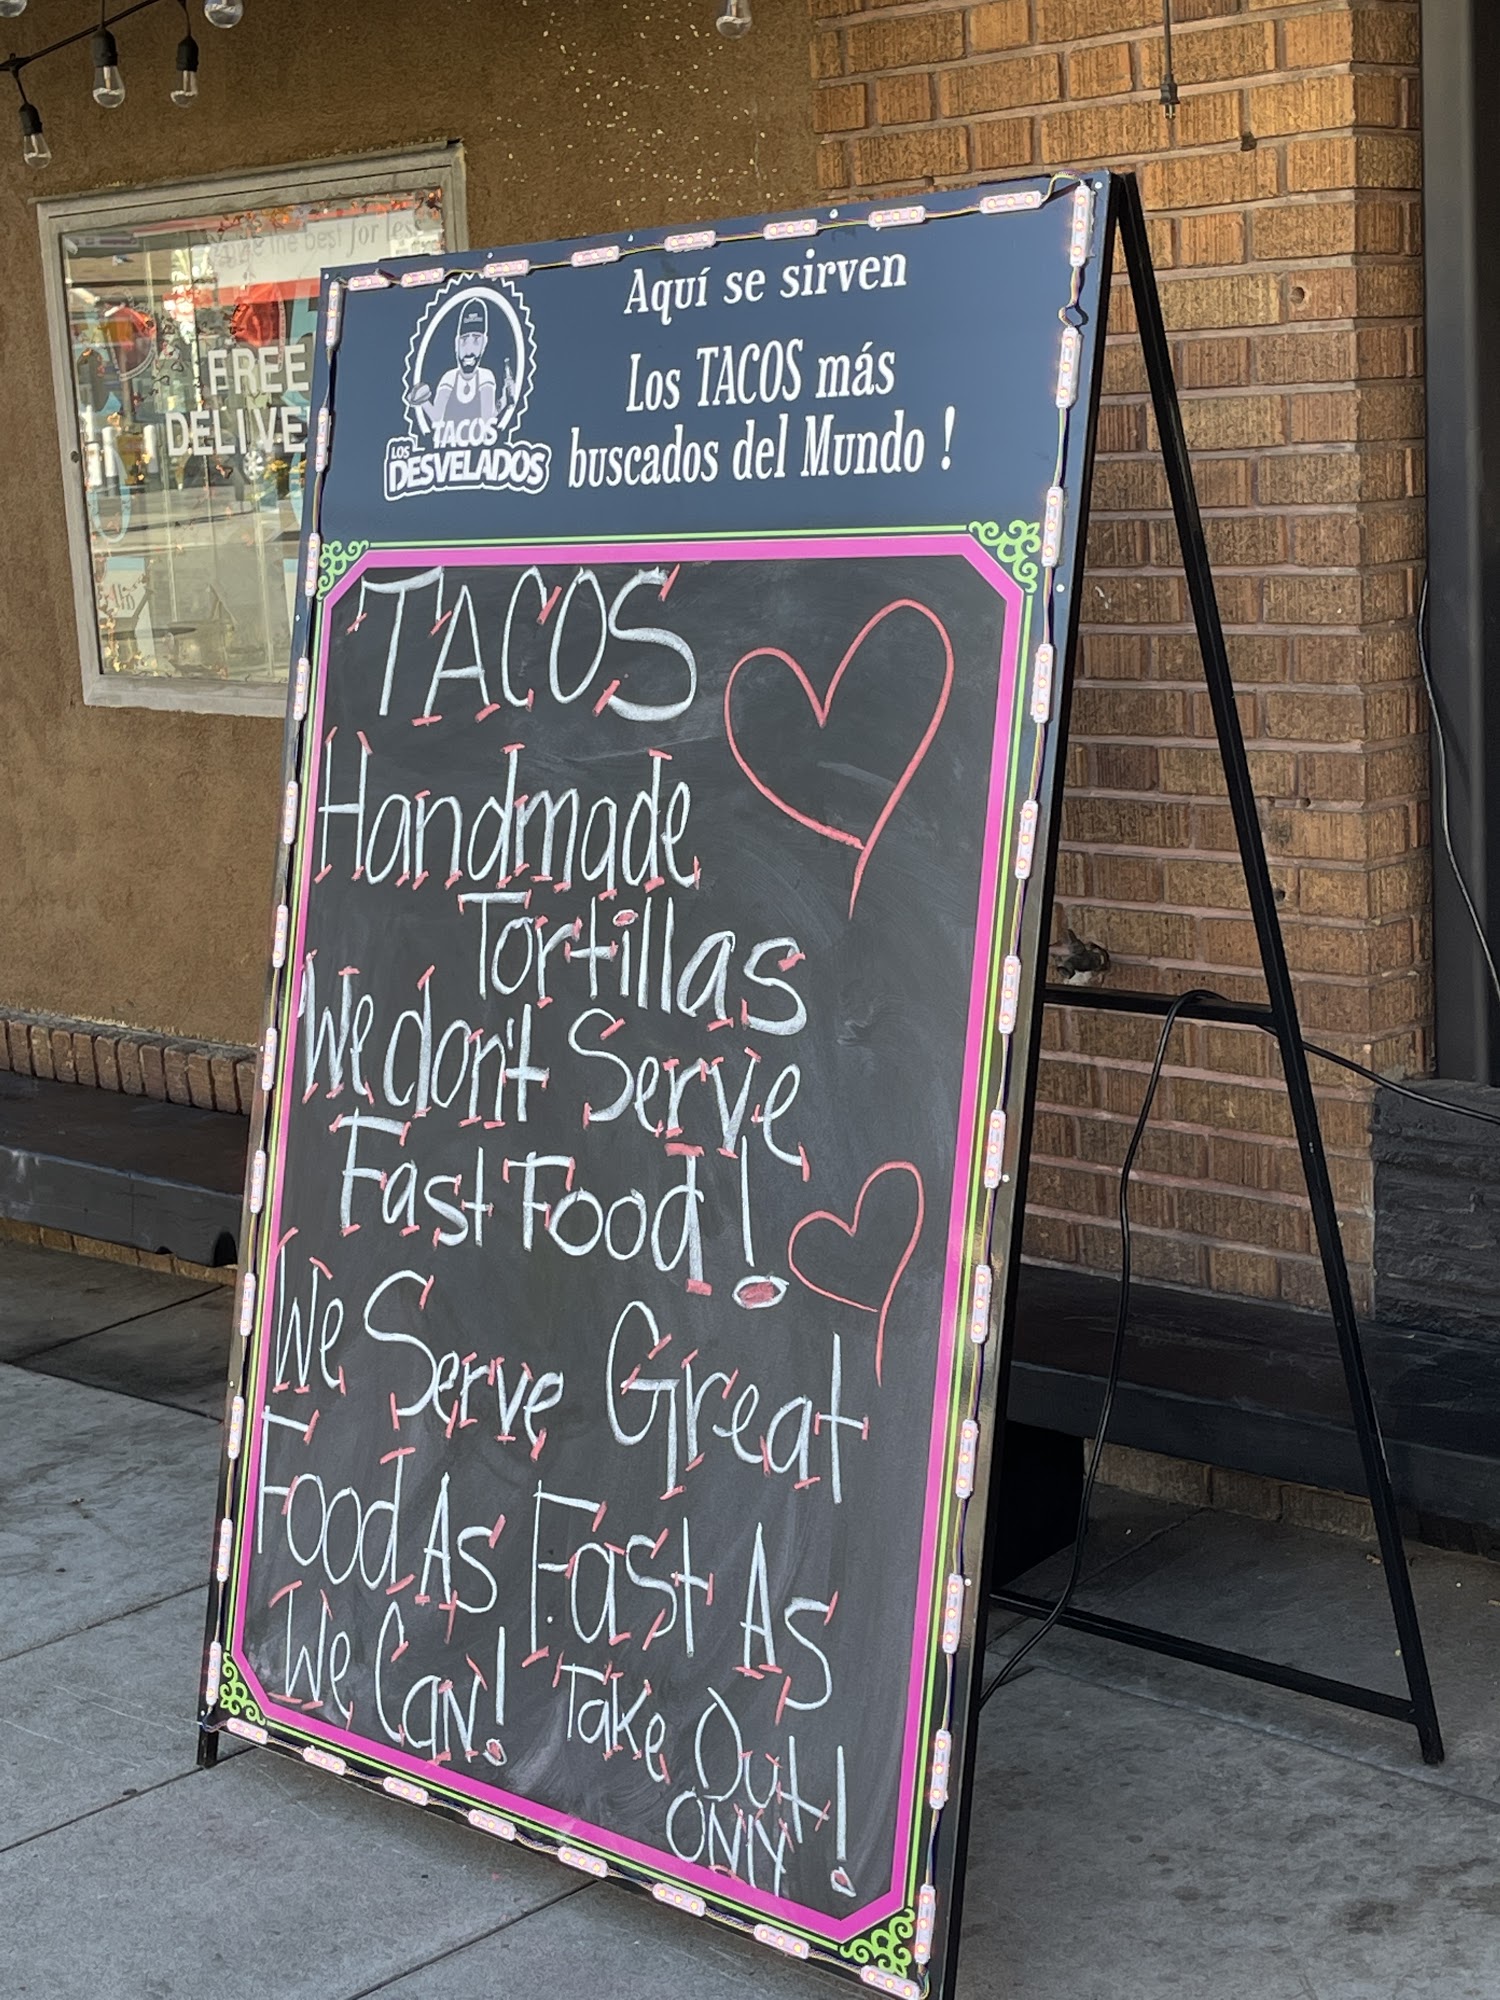 the best for less
FREE
DELIVE
Aquí se sirven
Los TACOS más
buscados del Mundo !
TACOS
LOS
DESVELADOS
TACOS
Handmade
Tortillas
We don't Serve
Fast Food!
We Serve Great
Food As Fast As
We Can! Take Out!
ONLY